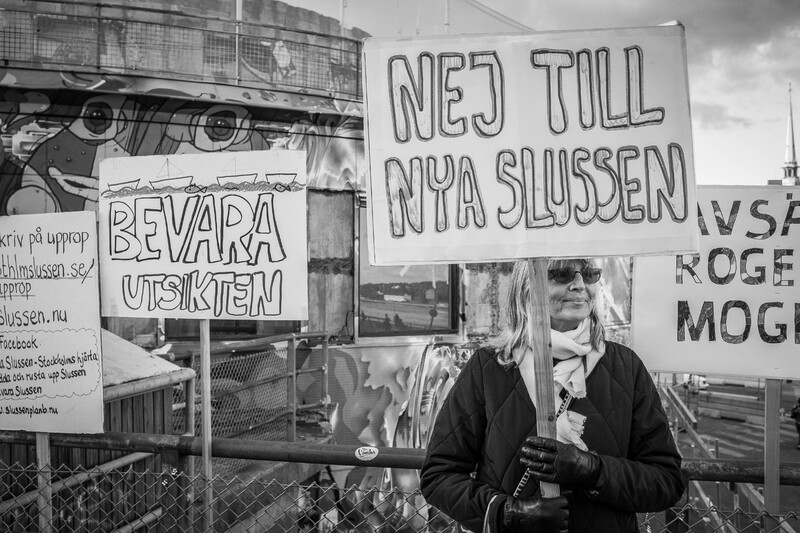 kriv på upprop
sthlmslussen.se/
upprop
slussen.nu
Facebook
Slussen - Stockholms hjärta
da och rusta upp Slussen
vara Slussen
w.slussenplanb.nu
BEVARA
UTSIKTEN
NEJ TILL
NYA SLUSSEN
AVSÄ
ROGE
MOGE